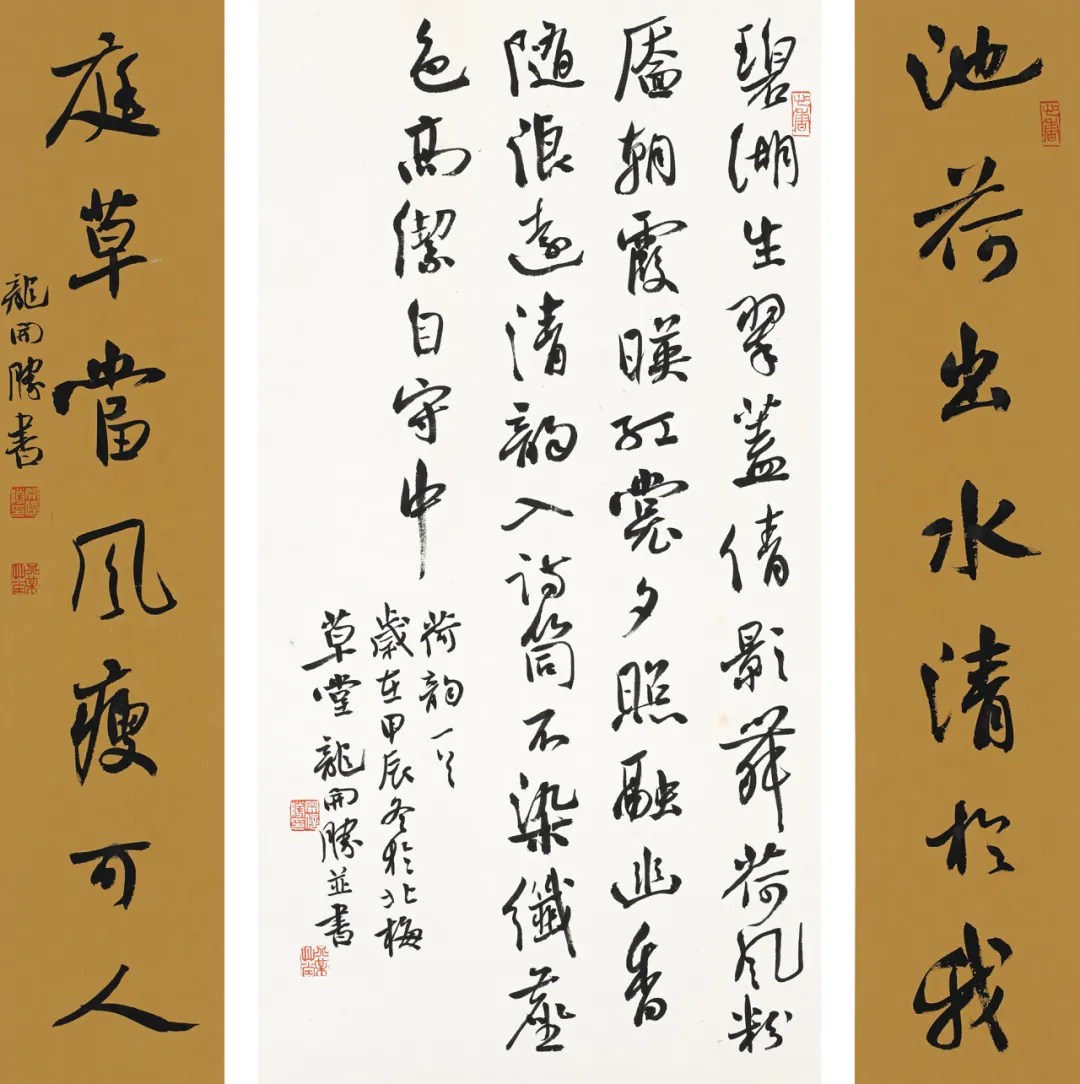 池荷出水清於我
碧湖生翠蓋倩影舞荷风粉
靥朝霞暎红裳夕照融幽香
随浪遠清韵入诗筒不染纖塵
色高潔自守中
荷韵一首
歲在甲辰冬於北梅
草堂龍開勝並書
庭草當风瘦可人
龍開勝書